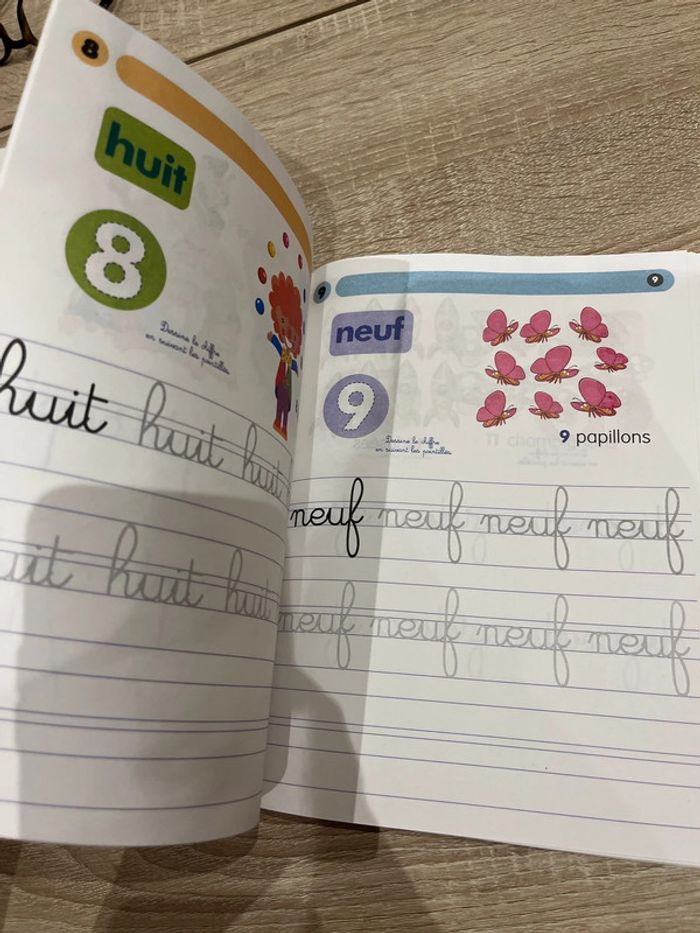 8
huit
8
Dessine le chiffre
en suivant les pointillés.
huit huit huit
huit huit
9 9
neuf
9
Dessine le chiffre
en suivant les pointillés.
9 papillons
neuf neuf neuf neuf
neuf neuf neuf neuf